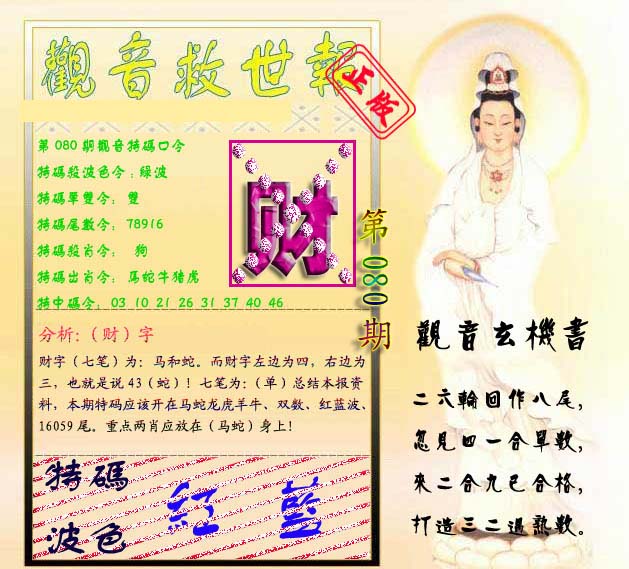 觀音救世報
正版
第080期觀音特碼口令
特碼殺波色令:綠波
特碼單雙令: 雙
特碼尾數令: 78916
特碼殺肖令: 狗
特碼出肖令: 馬蛇牛猪虎
特中碼令: 03 10 21 26 31 37 40 46
财
第080期
分析:(财)字
财字(七笔)为: 马和蛇。而财字左边为四, 右边为
三, 也就是说43(蛇)! 七笔为:(单)总结本报资
料, 本期特码应该开在马蛇龙虎羊牛、双数、红蓝波、
16059尾。重点两肖应放在(马蛇)身上!
特碼
波色
紅 藍
觀音玄機書
二六輪回作八尾,
忽見四一合單數,
來二合九已合格,
打造三二過熟數。